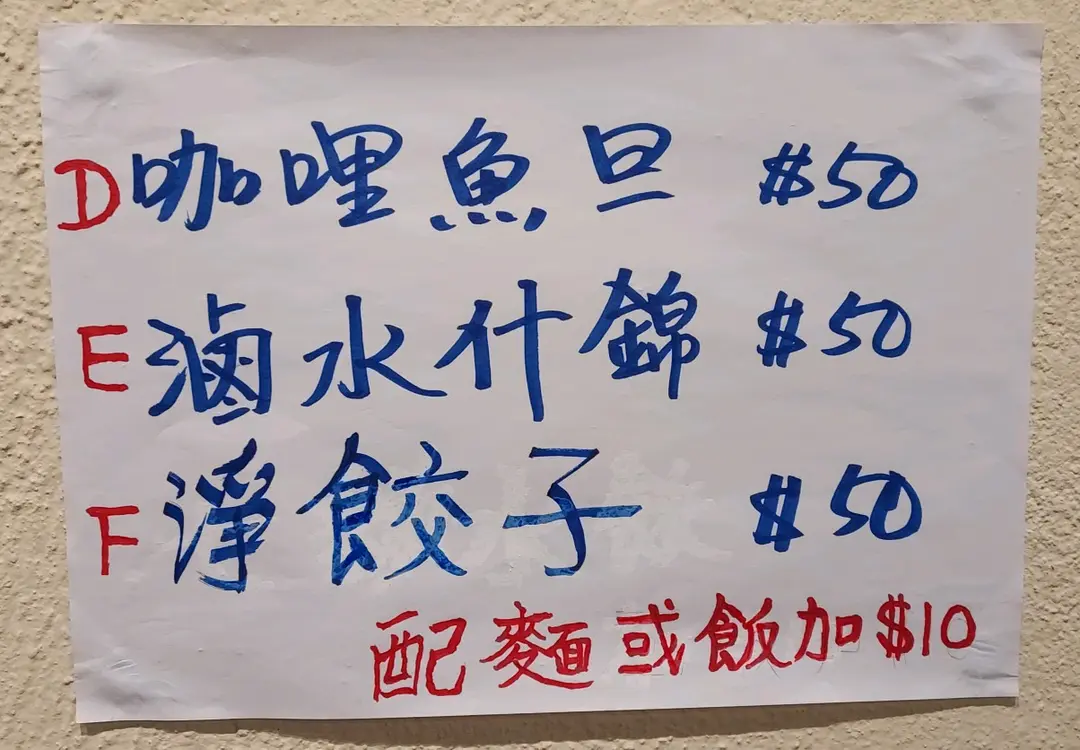 D咖哩魚旦 $50
E滷水什錦 $50
F淨餃子 $50
配麵或飯加$10